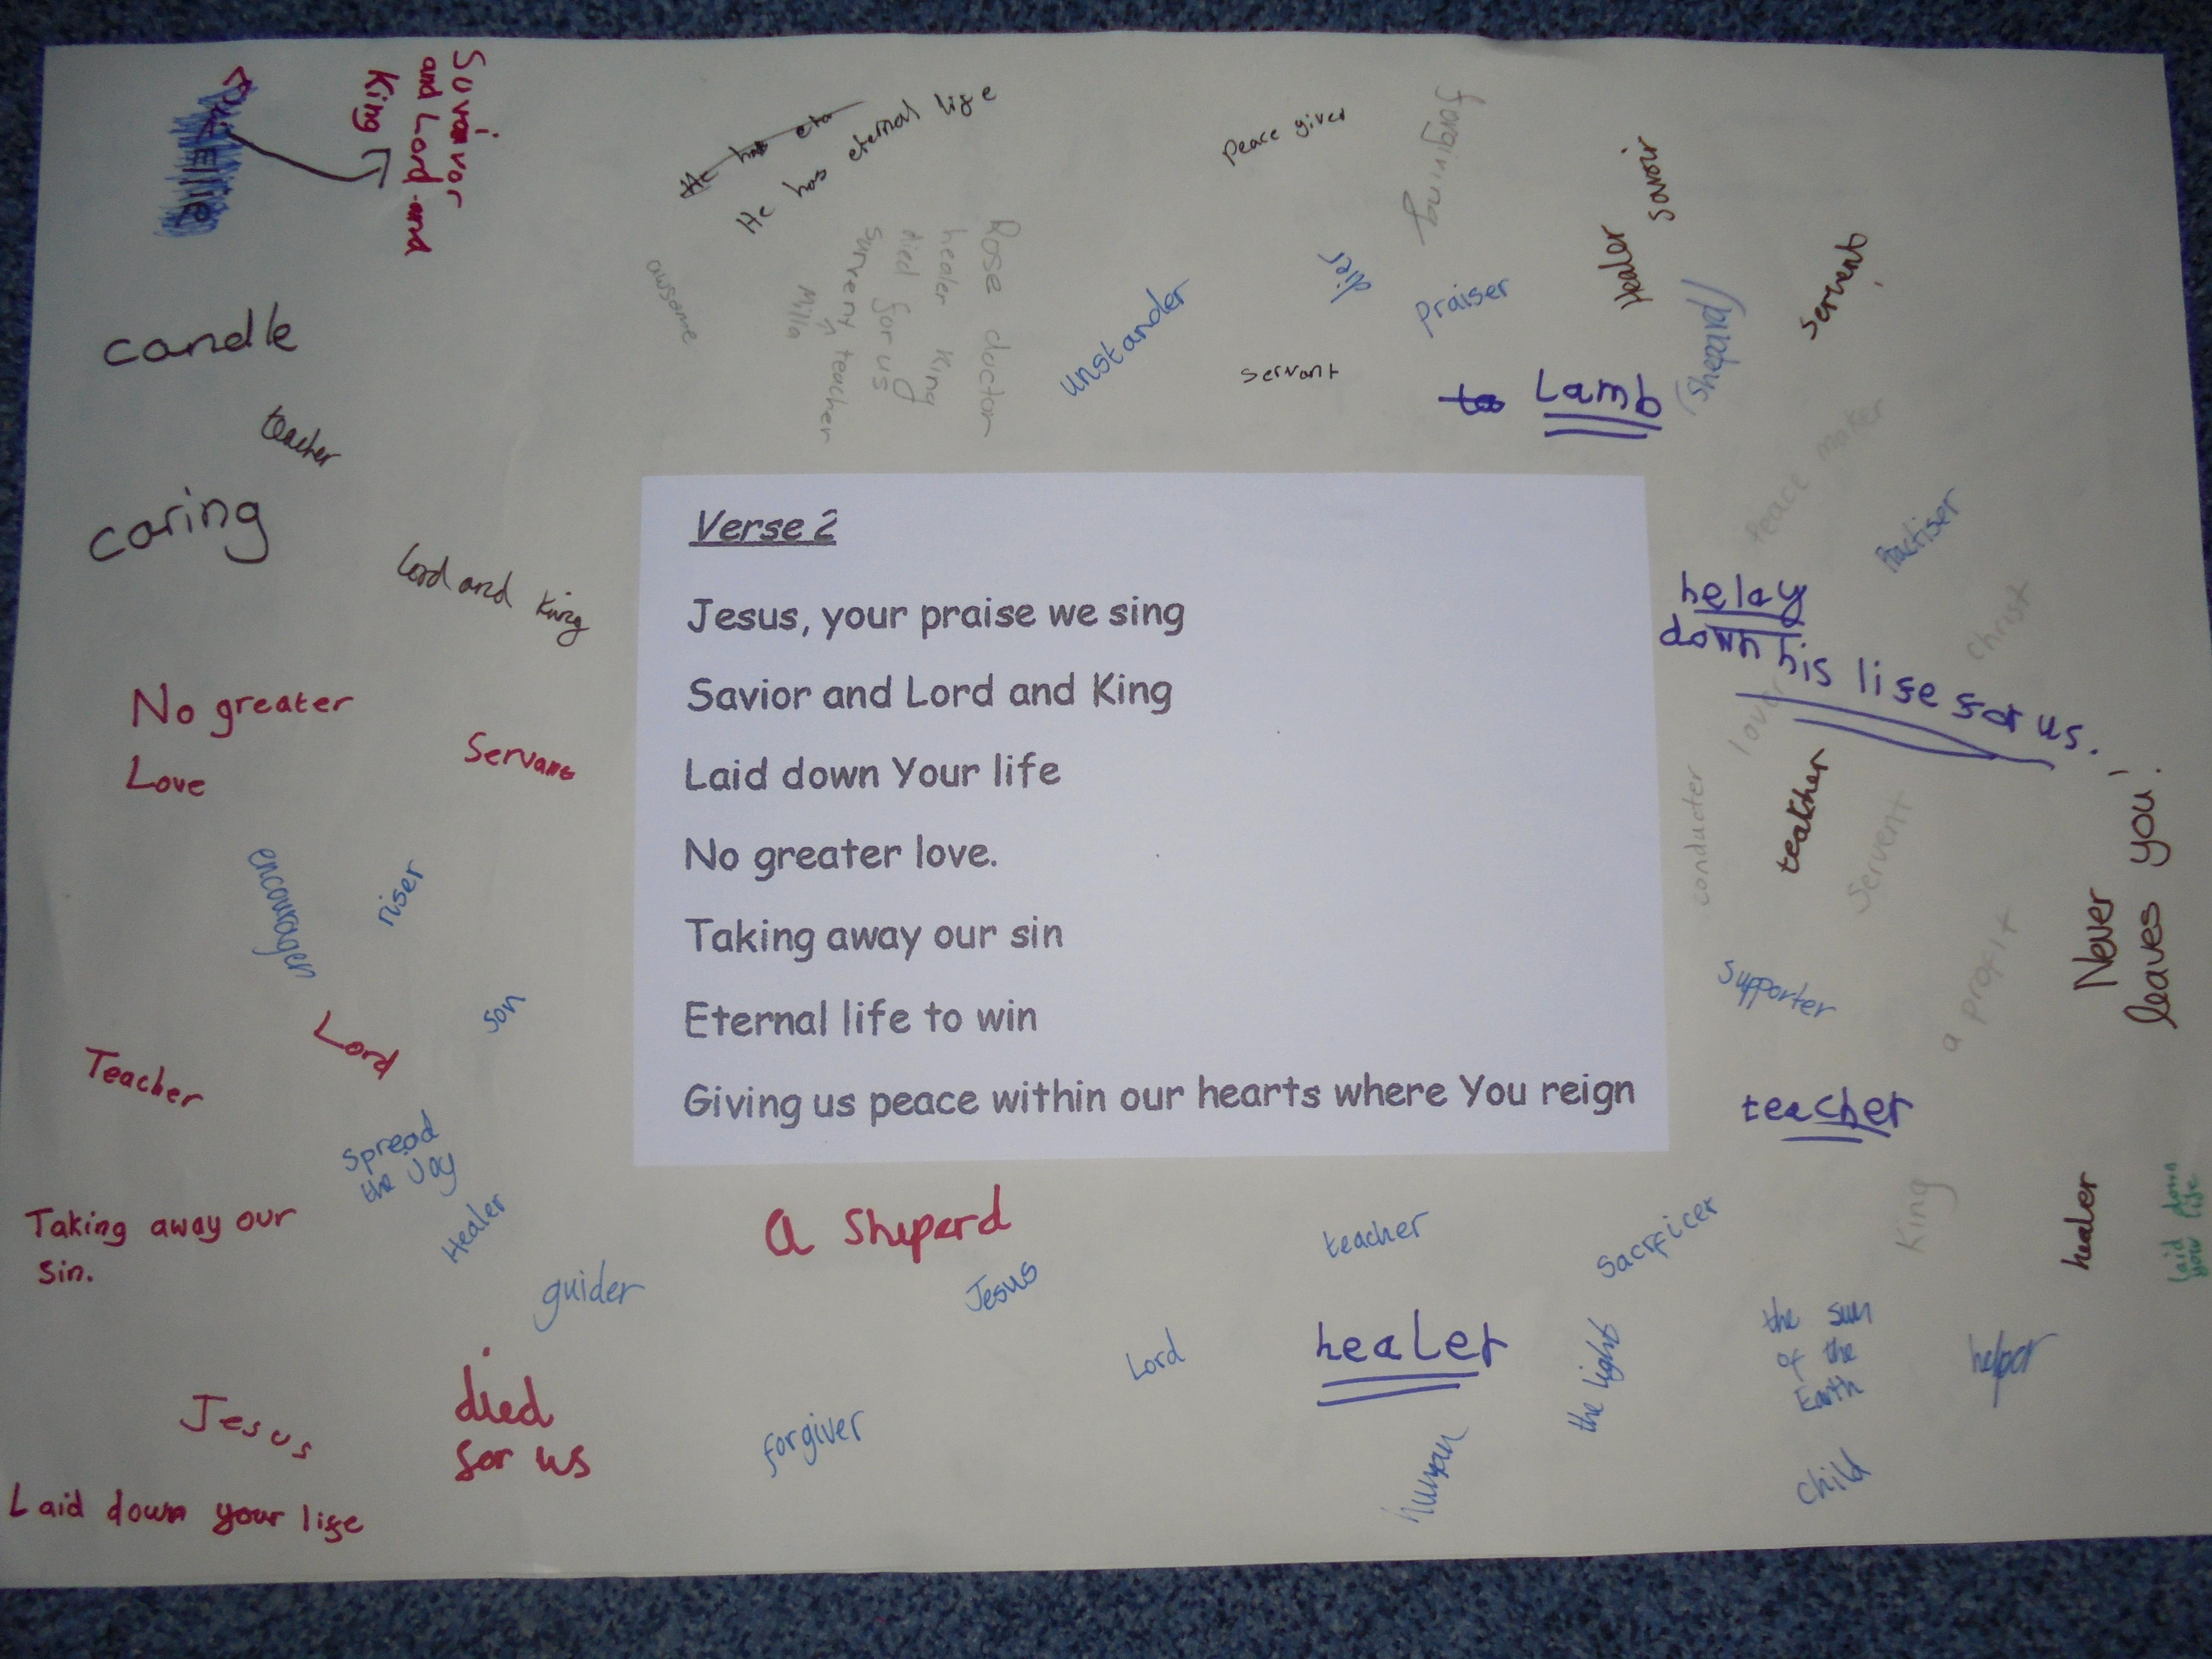 Suviavor
and Lord and
King
He has ete
He has eternal life
Peace giver
forgiving
Healer
savoir
servent
awsome
Rose doctor
healer King
died for us
survent teacher
Milla
unstander
dier
praiser
servant
to Lamb
(Shepard)
candle
teacher
caring
Lord and King
peace maker
Practiser
Christ
he lay
down his life for us.
lover
No greater
Love
Servant
Verse 2
Jesus, your praise we sing
Savior and Lord and King
Laid down Your life
No greater love.
Taking away our sin
Eternal life to win
Giving us peace within our hearts where You reign
conducter
teakher
Servent
Never
leaves you!
a profit
supporter
teacher
encourager
riser
son
Lord
Teacher
Spread
the Joy
Healer
Taking away our
sin.
guider
A Sheperd
Jesus
teacher
Sacrficer
King
healer
laid down
your life
Lord
healer
the light
the sun
of the
Earth
helper
Jesus
died
for us
forgiver
human
child
Laid down your life